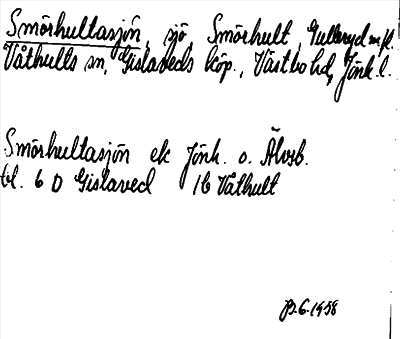 Smörhultasjön, sjö, Smörhult, Gulleryd m.fl.
Våthults sn, Gislaveds köp., Västbo hd, Jönk. l.
Smörhultasjön ek Jönk. o. Älvsb.
bl. 6 D Gislaved 1b Våthult
6.1958